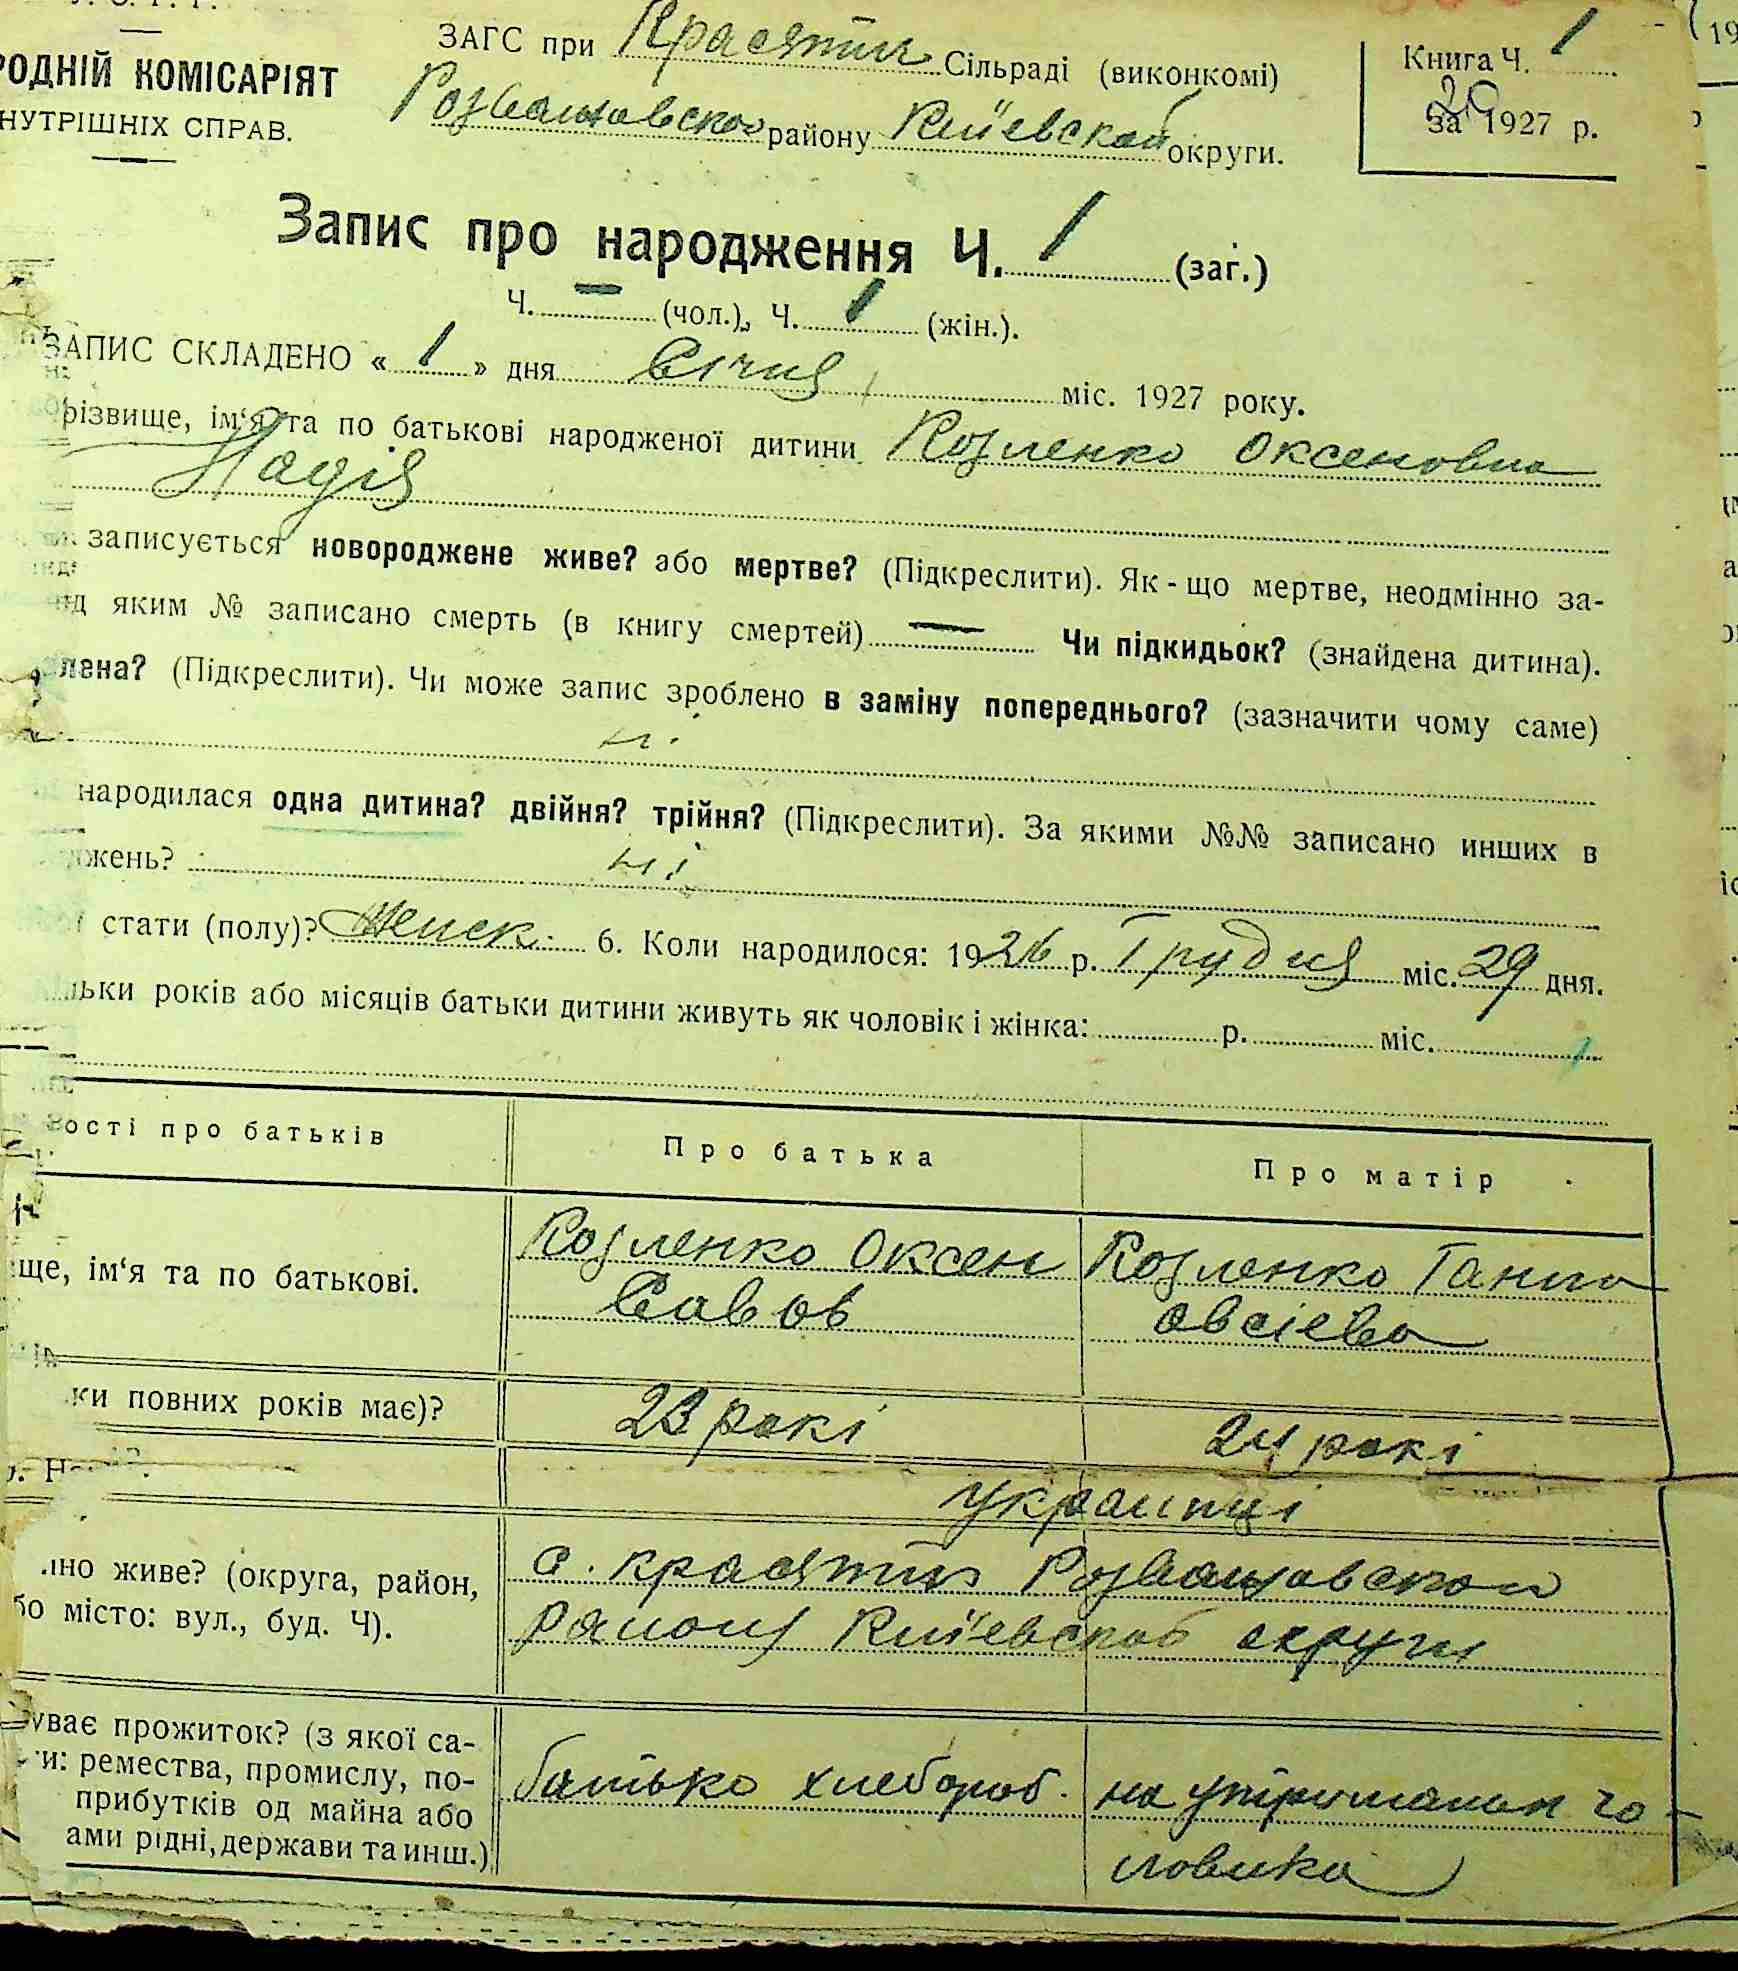 РОДНІЙ КОМІСАРІЯТ
НУТРІШНІХ СПРАВ.
ЗАГС при Красятичи Сільраді (виконкомі)
Розважовского району Київської округи.
Книга Ч. 1
за 1927 р.
Запис про народження Ч. 1 (заг.)
Ч. — (чол.), Ч. 1 (жін.).
ЗАПИС СКЛАДЕНО « 1 » дня Січня міс. 1927 року.
різвище, ім'я та по батькові народженої дитини Козленко Оксеновна
Надія
записується новороджене живе? або мертве? (Підкреслити). Як-що мертве, неодмінно за-
ід яким № записано смерть (в книгу смертей) — Чи підкидьок? (знайдена дитина).
лена? (Підкреслити). Чи може запис зроблено в заміну попереднього? (зазначити чому саме)
ні.
народилася одна дитина? двійня? трійня? (Підкреслити). За якими №№ записано инших в
жень? ні
стати (полу)? женск. 6. Коли народилося: 1926 р. Грудня міс. 29 дня.
льки років або місяців батьки дитини живуть як чоловік і жінка: р. міс.
ості про батьків
Про батька
Про матір
ще, ім'я та по батькові.
Козленко Оксен
Савов
Козленко Ганна
Овсієва
ки повних років має)?
23 рокі
24 рокі
украинці
но живе? (округа, район,
бо місто: вул., буд. Ч).
с. Красятичи Розважовского
району Київской округи
ує прожиток? (з якої са-
и: ремества, промислу, по-
прибутків од майна або
ами рідні, держави та инш.)
батько хлебороб.
на утриманьи чо-
ловика